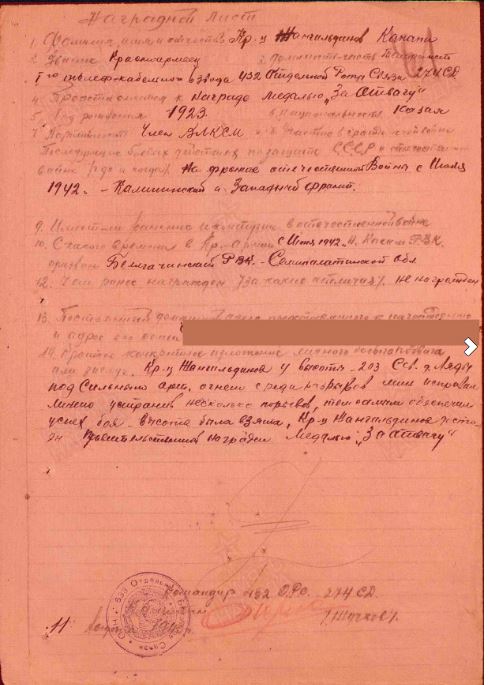 Наградной лист
1. Фамилия имя и отчество Кр-ц Жангильдинов Канапи
2. Звание Красноармеец 3. Должность Телефонист
1го телеф-кабельного взвода 432 Отдельной Роты Связи 274 СД
4. Представляется к Награде медалью "За Отвагу"
5. Год рождения 1923. 6. Национальность Казах
7. Партийность Член ВЛКСМ 8. Участие в гражд. войне
Последующие боевые действия по защите СССР и отечествен.
войне (где и когда) На фронте отечественной Войны с Июля
1942 - Калининский и Западный фронт.
9. Имеет ли ранение и контузии в отечественной войне
10. С какого времени в Кр-Армии с Июня 1942 11. Каким РВК
призван Бельагачинский РВК. - Семипалатинской обл
12. Чем ранее награжден (за какие отличия). не награжден
13. Постоянный домашний адрес представленного к награждению
и адрес его семьи
14. Краткое конкретное изложение личного боевого подвига
или заслуг. Кр-ц Жангильдинов у высоты - 203 Сев. д. Ляды
под Сильным арт. огнем среди взрывов мин исправлял
линию устраняя несколько порывов, тем самым обеспечил
успех боя - высота была взята, Кр-ц Жангильдинов досто-
ин Правительственной награды Медалью "За Отвагу"
Командир 432 О.Р.С. 274 СД
11